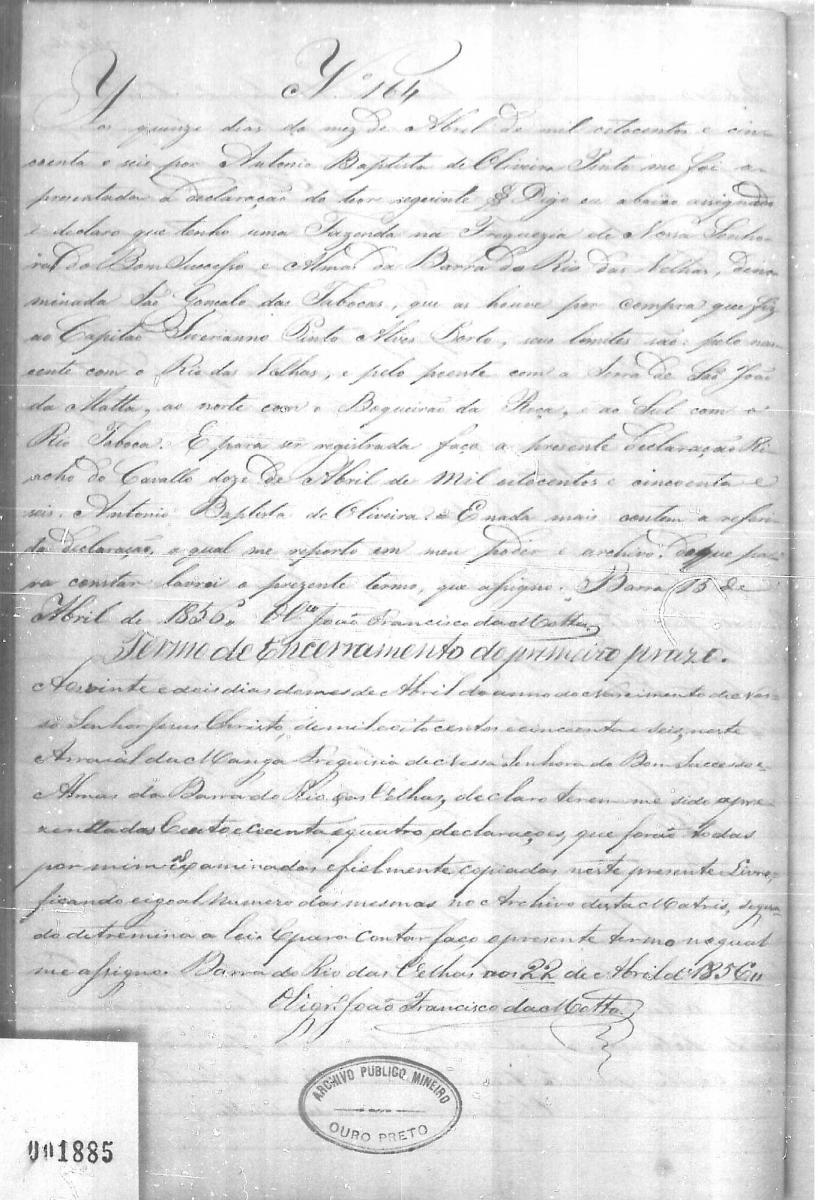 Nº 164
Aos quinze dias do mez de Abril de mil oitocentos e cin-
coenta e seis por Antonio Baptista de Oliveira Pinto me foi a-
presentada a declaração do teor seguinte Digo eu abaixo assignado
e declaro que tenho uma Fazenda na Freguezia de Nossa Senho-
ra do Bom Successo e Almas da Barra do Rio das Velhas, deno-
minada São Gonçalo das Tabocas, que as houve por compra que fiz
ao Capitão Severianno Pinto Alves Porto, seus limites são: pelo nas-
cente com o Rio das Velhas, e pelo poente com a Serra de São João
da Matta, ao norte com o Boqueirão da Roça, e ao Sul com o
Rio Taboca. E para ser registrada faço a presente declaração Ri-
acho do Cavallo doze de Abril de Mil oitocentos e cincoenta e
seis. Antonio Baptista de Oliveira. E nada mais contem a referi-
da declaração, a qual me reporto em meu poder e archivo. Do que pa-
ra constar lavrei o prezente termo, que assigno. Barra 15 de
Abril de 1856. O Vigrº João Francisco da Motta.
Termo de Encerramento do primeiro prazo.
Aos vinte e dois dias do mes de Abril do anno do Nascimento de Nos-
so Senhor Jesus Christo, de mil e oito centos e cincoenta e seis, neste
Arraial da Manga Freguisia de Nossa Senhora do Bom Successo e
Almas da Barra do Rio das Velhas, declaro terem me sido apre-
zenttadas Cento e cecenta e quatro declarações, que forão todas
por mim Examinadas e fielmente copiadas neste presente Livro,
ficando eigoal numero das mesmas no Archivo desta Matris, segun-
do detremina a lei. E para contar faço o presente termo no qual
me assigno. Barra do Rio das Velhas aos 22 de Abril dº 1856
O Vigrº João Francisco da Motta.
ARCHIVO PUBLICO MINEIRO
OURO PRETO
001885